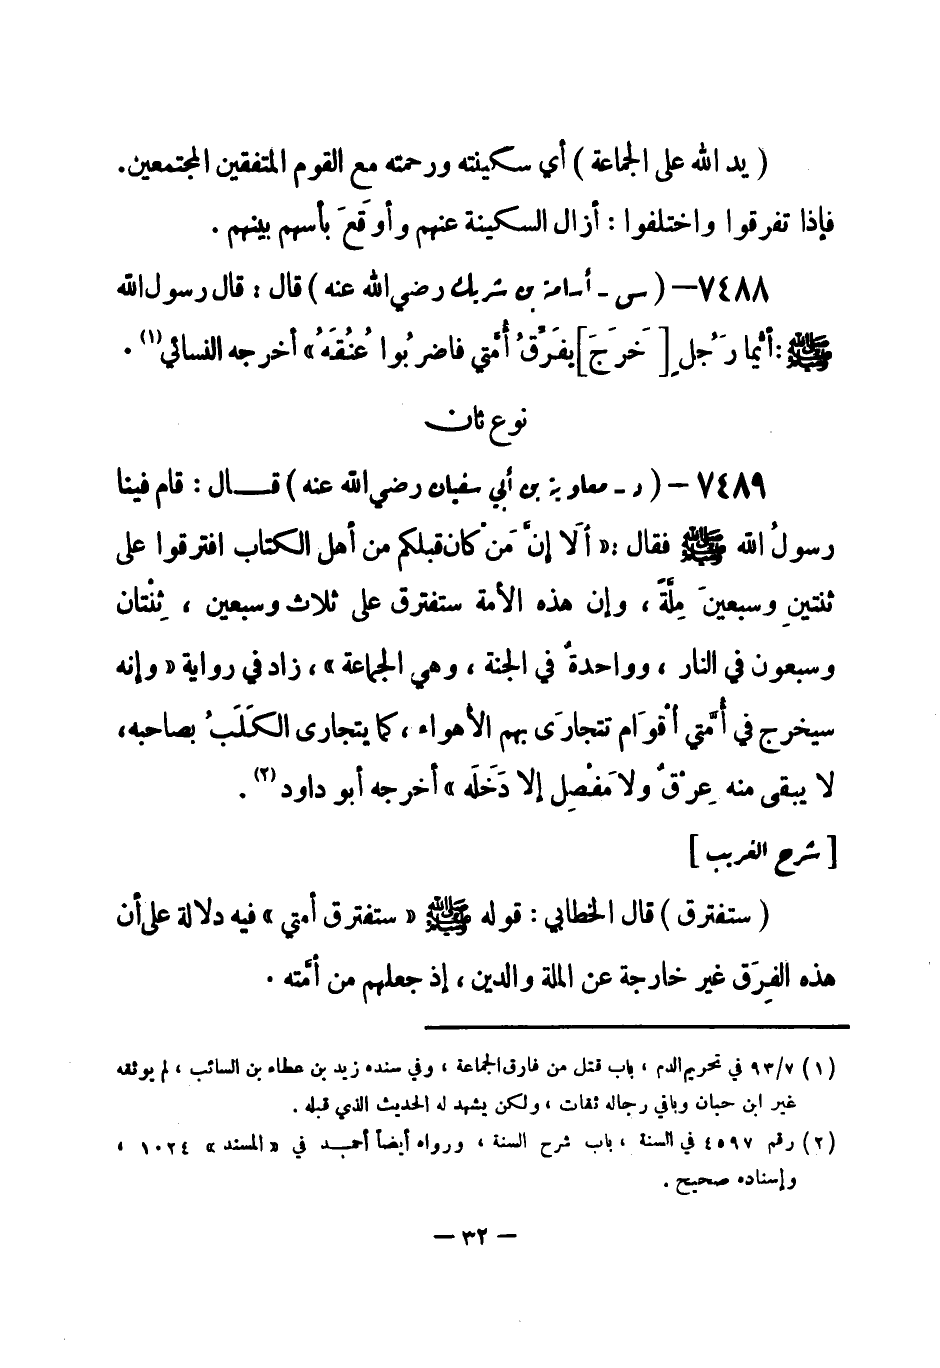 ( يد الله على الجماعة ) أي سكينته ورحمته مع القوم المتفقين المجتمعين.
فإذا تفرقوا واختلفوا : أزال السكينة عنهم وأوقَعَ بأسهم بينهم .
٧٤٨٨ – ( سى - أسامة بن شريك رضي الله عنه ) قال : قال رسول الله
ﷺ : أيُّما رَجُلٍ [ خَرَجَ ] يفَرِّقُ أُمَّتي فاضربُوا عُنُقَهُ » أخرجه النسائي (١) .
نوع ثان
٧٤٨٩ – ( د - معاوية بن أبي سفيان رضي الله عنه ) قـــال : قام فينا
رسولُ الله ﷺ فقال :« ألَا إنَّ مَنْ كان قبلكم من أهل الكتاب افترقوا على
ثنتينِ وسبعينَ مِلَّةً ، وإن هذه الأمة ستفترق على ثلاث وسبعين ، ثِنْتان
وسبعون في النار ، وواحدةٌ في الجنة ، وهي الجماعة » ، زاد في رواية « وإنه
سيخرج في أُمَّتي أقْوَام تتجارَى بهم الأهواء ، كما يتجارى الكَلَبُ بصاحبه،
لا يبقى منه عِرْقٌ ولا مَفْصِل إلا دَخَلَه » أخرجه أبو داود (٢) .
[ شرح الغريب ]
( ستفترق ) قال الخطابي : قوله ﷺ « ستفترق أمتي » فيه دلالة على أن
هذه الفِرَق غير خارجة عن الملة والدين ، إذ جعلهم من أمَّته .
(١) ٩٣/٧ في تحريم الدم ، باب قتل من فارق الجماعة ، وفي سنده زيد بن عطاء بن السائب ، لم يوثقه
غير ابن حبان وباقي رجاله ثقات ، ولكن يشهد له الحديث الذي قبله .
(٢) رقم ٤٥٩٧ في السنة ، باب شرح السنة ، ورواه أيضاً أحمـــد في « المسند » ١٠٢٤ ،
وإسناده صحيح .
– ٣٢ –